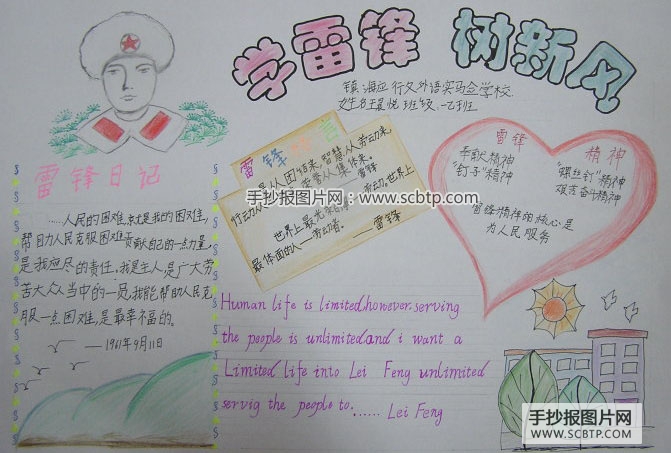 学雷锋 树新风
镇海区行文外语实验学校
雷锋日记
……人民的困难,就是我的困难,
帮助人民克服困难贡献自己的一点力量,
是我应尽的责任,我是主人,是广大劳
苦大众当中的一员,我能帮助人民克
服一点困难,是最幸福的。
——1961年9月11日
雷锋
力量从团结来,智慧从劳动来,
行动从 来,荣誉从集体来。
世界上最光荣的——劳动,世界上
最体面的人——劳动者。
——雷锋
雷锋 精神
奉献精神
"钉子"精神
"螺丝钉"精神
艰苦奋斗精神
雷锋精神的核心是
为人民服务
Human life is limited,however.serving
the people is unlimited.and i want a
Limited life into Lei Feng unlimited
servig the people to...... Lei Feng
手抄报图片网
www.scbtp.com
手抄报图片网
www.SCBTP.COM